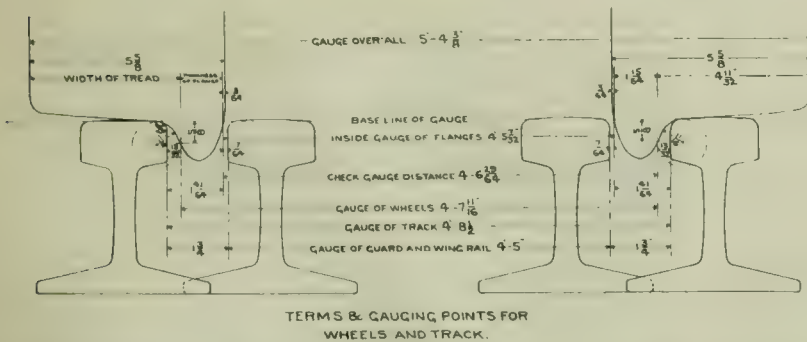 GAUGE OVER ALL 5'-4 3/8"
5 5/8
WIDTH OF TREAD
THICKNESS OF FLANGE
5 5/8
1 15/64
4 11/32
3/64
3/64
BASE LINE OF GAUGE
5/8
5/8
INSIDE GAUGE OF FLANGES 4' 5 7/32"
7/64
7/64
CHECK GAUGE DISTANCE 4'-6 29/64"
1 41/64
1 41/64
GAUGE OF WHEELS 4'-7 11/16"
GAUGE OF TRACK 4' 8 1/2"
GAUGE OF GUARD AND WING RAIL 4'-5"
1 3/4
1 3/4
TERMS & GAUGING POINTS FOR
WHEELS AND TRACK.